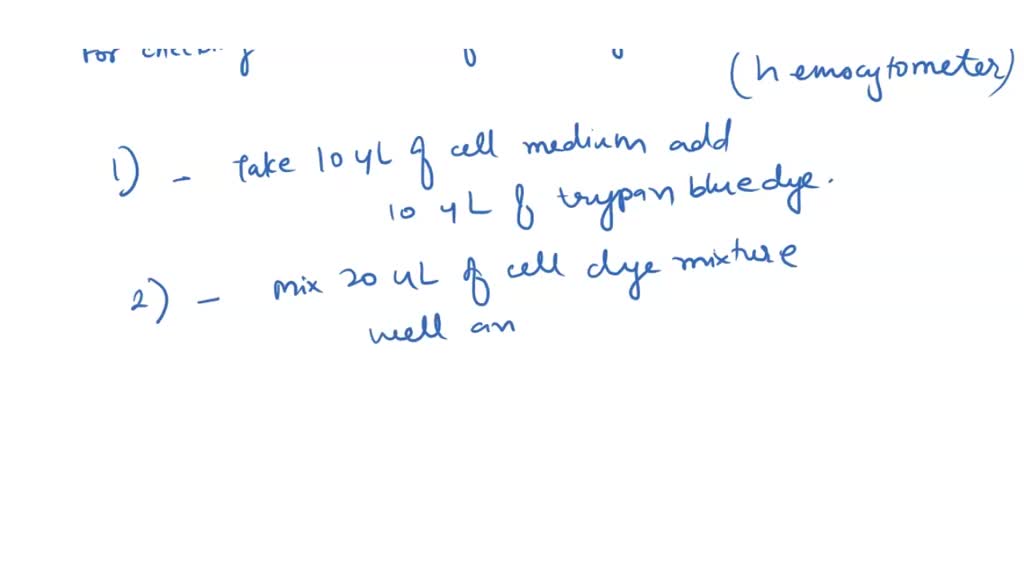 For
(hemocytometer)
1) - Take 10 µL of cell medium add
10 µL of trypan blue dye.
2) - mix 20 µL of cell dye mixture
well an